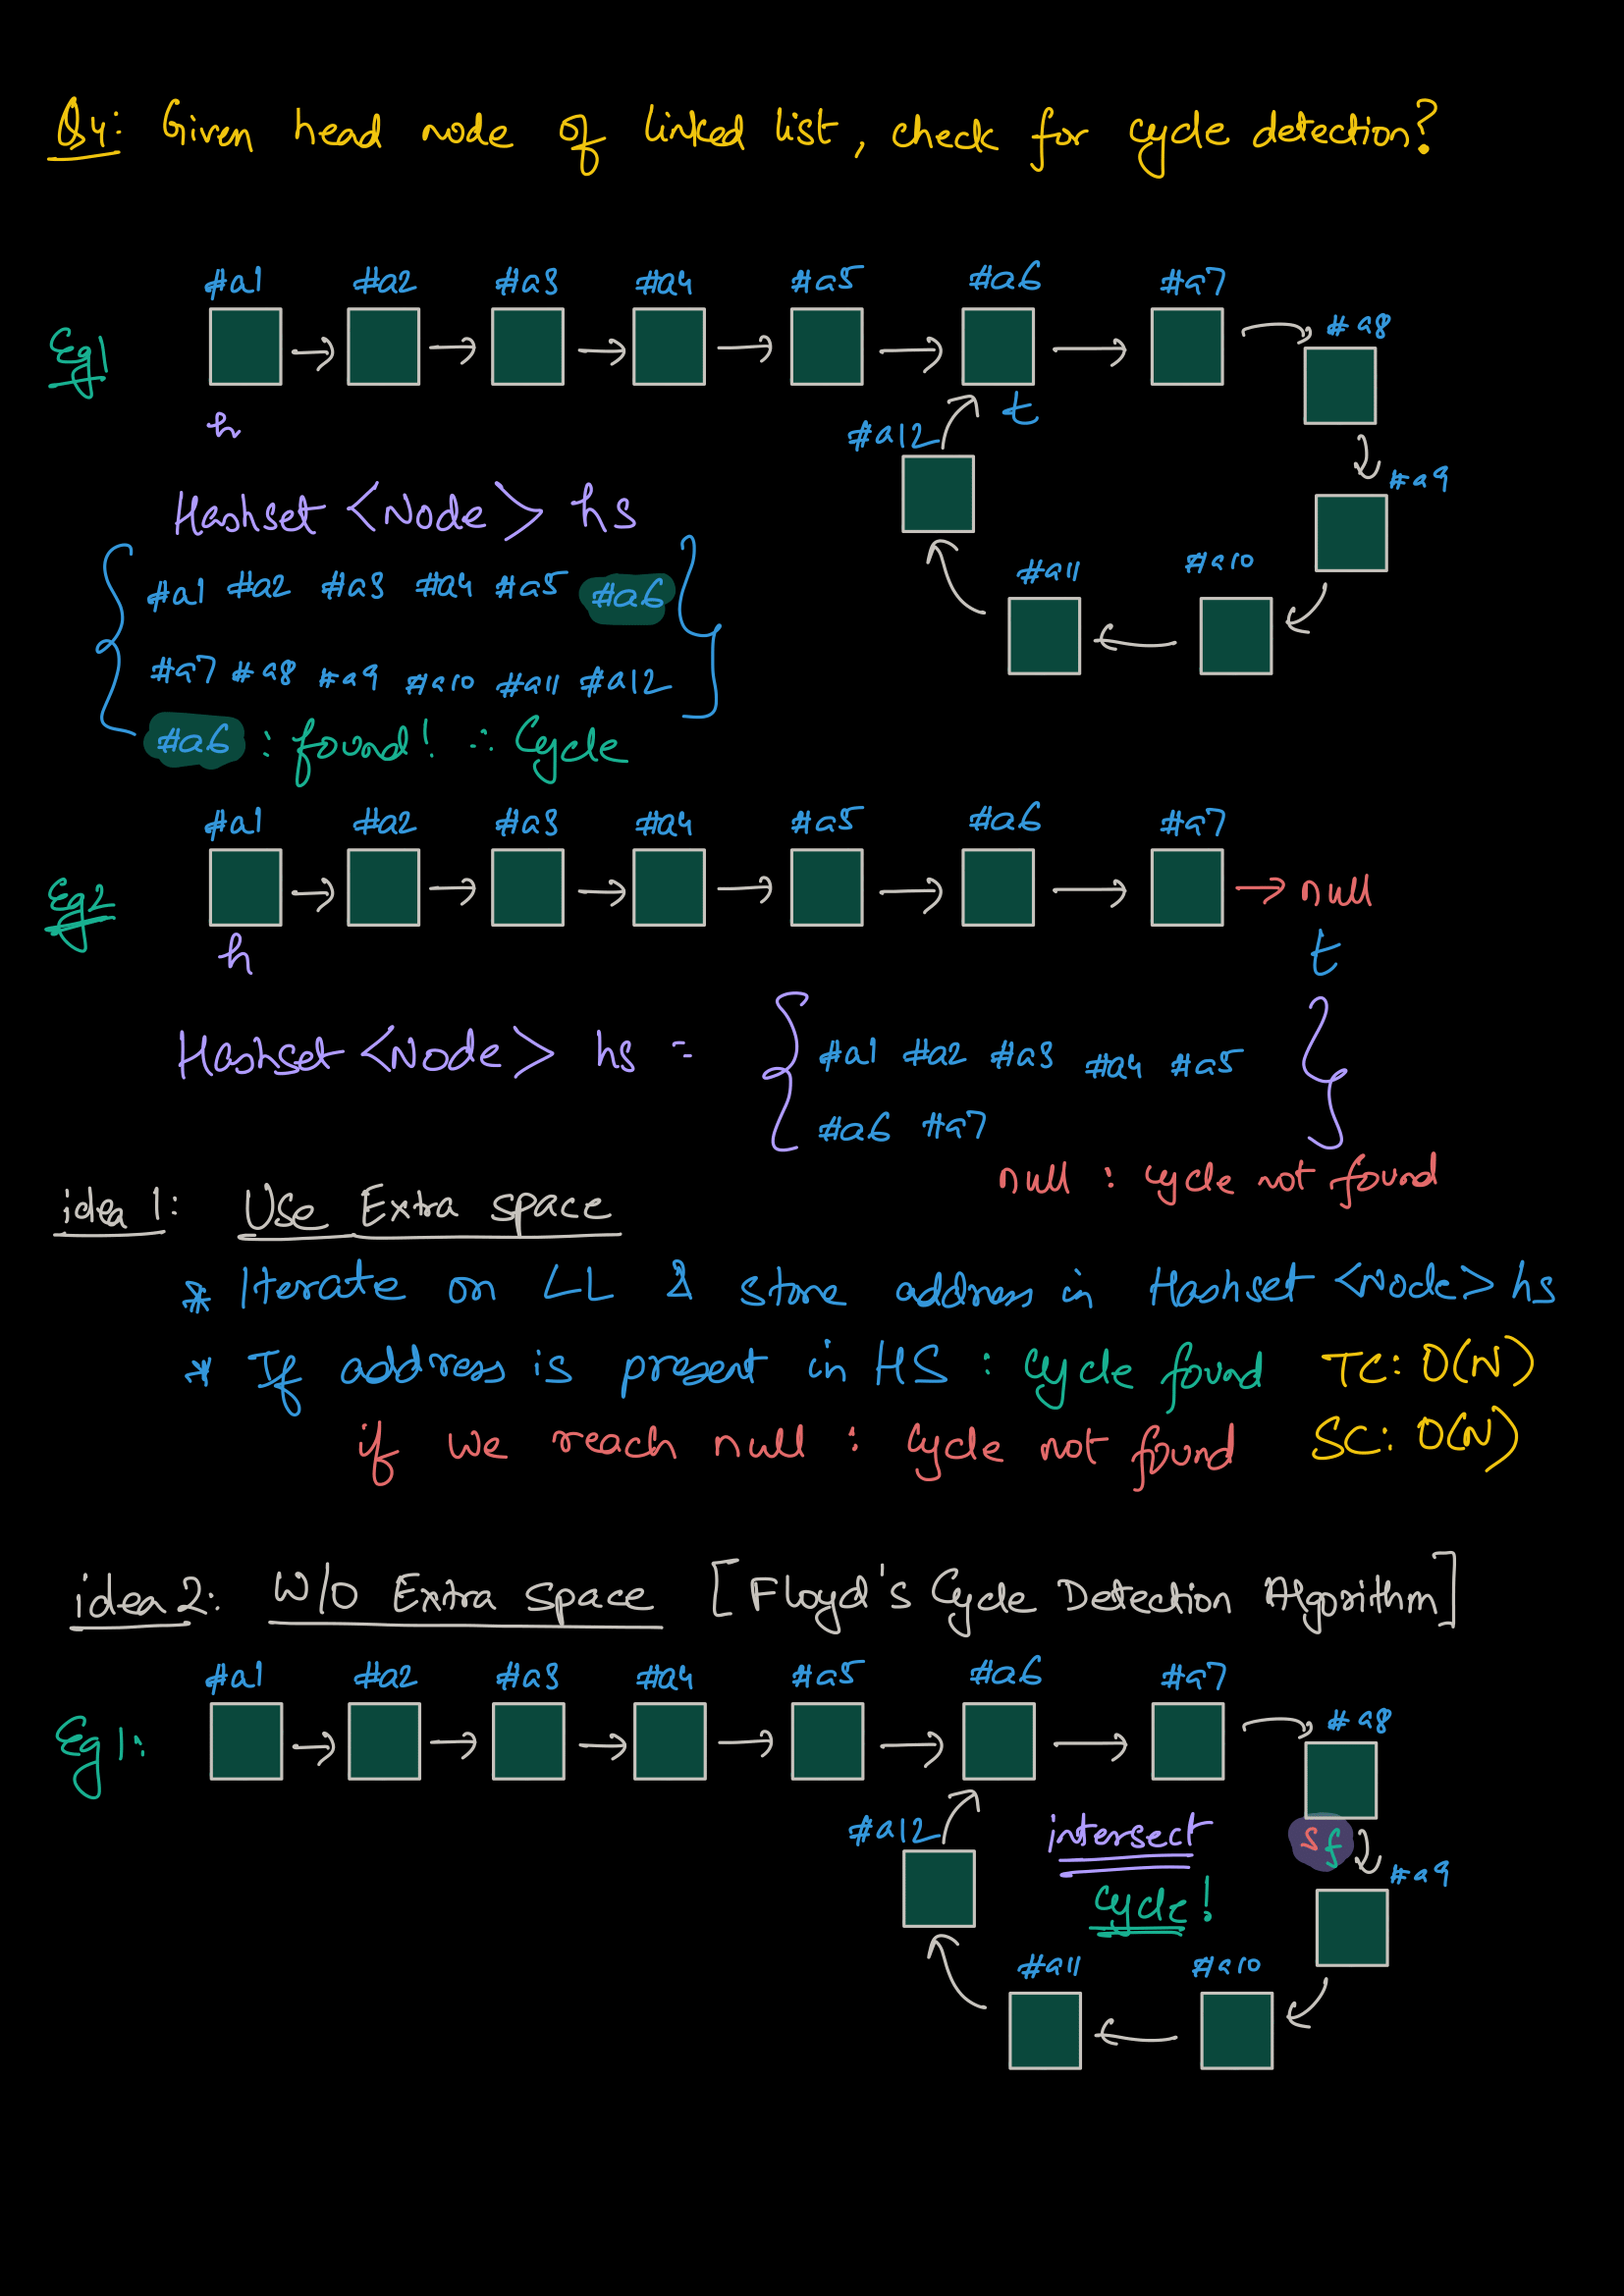 Q4: Given head node of linked list, check for cycle detection?
#a1 #a2 #a3 #a4 #a5 #a6 #a7
#a8
Eg1
h
t
#a12
#a9
Hashset <Node> hs
#a11 #a10
#a1 #a2 #a3 #a4 #a5 #a6
#a7 #a8 #a9 #a10 #a11 #a12
#a6 : found! ∴ Cycle
#a1 #a2 #a3 #a4 #a5 #a6 #a7
Eg2
null
h
t
Hashset <Node> hs =
#a1 #a2 #a3 #a4 #a5
#a6 #a7
null : cycle not found
idea 1: Use Extra space
* Iterate on LL & store address in Hashset <Node> hs
* If address is present in HS : cycle found TC: O(N)
if we reach null : cycle not found SC: O(N)
idea 2: W/O Extra space [Floyd's Cycle Detection Algorithm]
#a1 #a2 #a3 #a4 #a5 #a6 #a7
#a8
Eg 1:
#a12
intersect
s f
#a9
cycle!
#a11 #a10